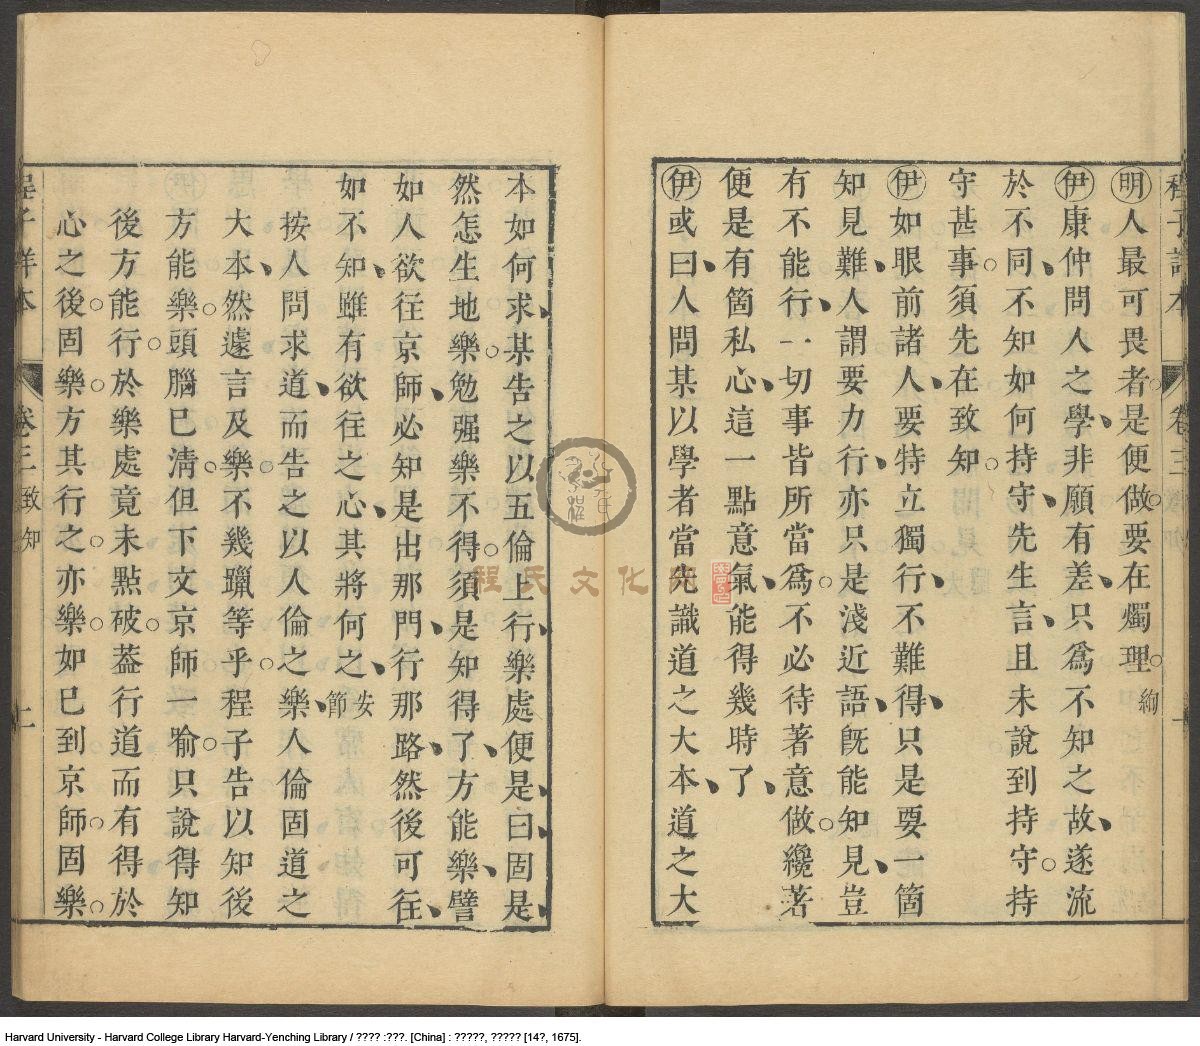 明人最可畏者是便做要在燭理絢
伊康仲問人之學非願有差只爲不知之故遂流
於不同不知如何持守先生言且未說到持守持
守甚事須先在致知
伊如眼前諸人要特立獨行不難得只是要一箇
知見難人謂要力行亦只是淺近語旣能知見豈
有不能行一切事皆所當爲不必待著意做纔著
便是有箇私心這一點意氣能得幾時了
伊或曰人問某以學者當先識道之大本道之大
卷三
一
本如何求某告之以五倫上行樂處便是曰固是
然怎生地樂勉强樂不得須是知得了方能樂譬
如人欲往京師必知是出那門行那路然後可往
如不知雖有欲往之心其將何之安節
按人問求道而告之以人倫之樂人倫固道之
大本然遽言及樂不幾躐等乎程子告以知後
方能樂頭腦已淸但下文京師一喻只說得知
後方能行於樂處竟未點破葢行道而有得於
心之後固樂方其行之亦樂如已到京師固樂
程子詳本 卷三 致知 二
程氏文化
Harvard University - Harvard College Library Harvard-Yenching Library / ???? :???. [China] : ?????, ????? [14?, 1675].